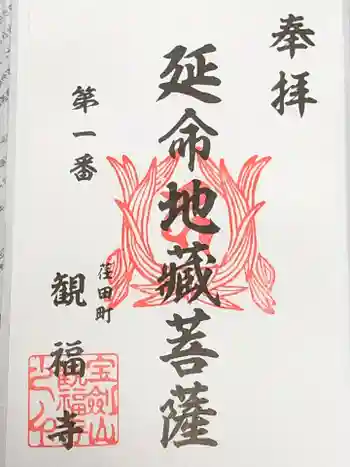 奉拝
延命地蔵菩薩
第一番
荏田町
観福寺
宝劔山
観福